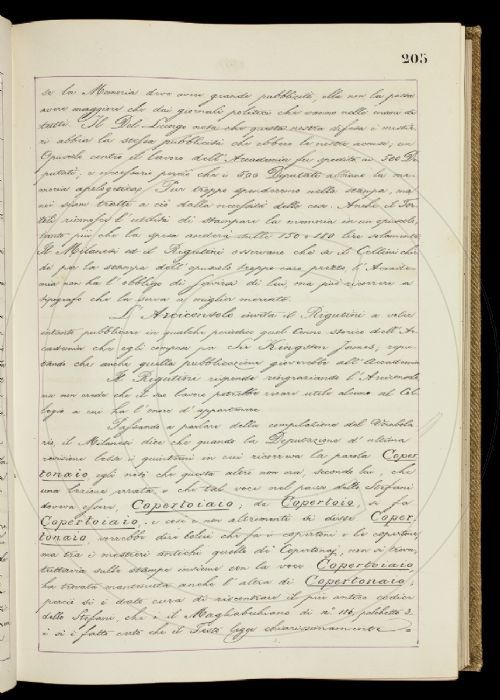 205
se la Memoria deve avere grande pubblicità, ella non la possa
avere maggiore che dai giornali politici che vanno nelle mani di
tutti. Il Del Lungo nota che questa nostra difesa è mestie-
ri abbia la stessa pubblicità che ebbero le nostre accuse; un
Opuscolo contro il lavoro dell'Accademia fu spedito ai 500 De-
putati, è necessario perciò che i 500 Deputati abbiano la me-
moria apologetica. Pur troppo spenderemo nella stampa, ma
noi siam tratti a ciò dalla necessità delle cose. Anche il Tor-
toli riconosce l'utilità di stampare la memoria in un opuscolo,
tanto più che la spesa anderà sulle 150 o 180 lire solamente.
Il Milanesi ed il Rigutini osservano che se il Cellini chie-
de per la stampa dell'opuscolo troppo caro prezzo, l'Accade-
mia non ha l'obbligo di servirsi di lui, ma può ricorrere a
tipografo che la serva a miglior mercato.
L'Arciconsolo invita il Rigutini a voler
intanto pubblicare in qualche periodico quel Cenno storico dell'Ac-
cademia che egli compose per Sir Kingston James, repu-
tando che anche quella pubblicazione gioverebbe all'Accademia.
Il Rigutini risponde ringraziando l'Arciconsolo
ma non crede che il suo lavoro potrebbe recare utile alcuno al Col-
legio a cui ha l'onore d'appartenere.
Passando a parlare della compilazione del Vocabola-
rio, il Milanesi dice che quando la Deputazione d'ultima
revisione lesse i quinterni in cui ricorreva la parola Coper-
tonaio egli notò che questa altro non era, secondo lui, che
una lezione errata, e che tal voce nel passo dello Stefani
doveva essere, Copertoiaio, da Copertoio, si fa
Copertoiaio, e così e non altrimenti si disse Coper-
tonaio, vorrebbe dire colui che fa i copertoni o le copertine,
ma tra i mestieri antichi quello di Copertonaio, non si trova,
tuttavia sulle stampe insieme con la voce Copertoiaio
ha trovata mantenuta anche l'altra di Copertonaio;
perciò si è dato cura di riscontrare il più antico codice
dello Stefani, che è il Magliabechiano di n.° 114, palchetto 2.
e si è fatto certo che il Testo legge chiarissimamente